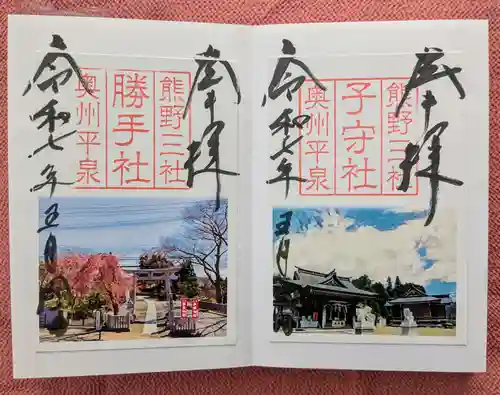 奉拝
熊野三社
子守社
奥州平泉
令和七年
五月
奉拝
熊野三社
勝手社
奥州平泉
令和七年
五月